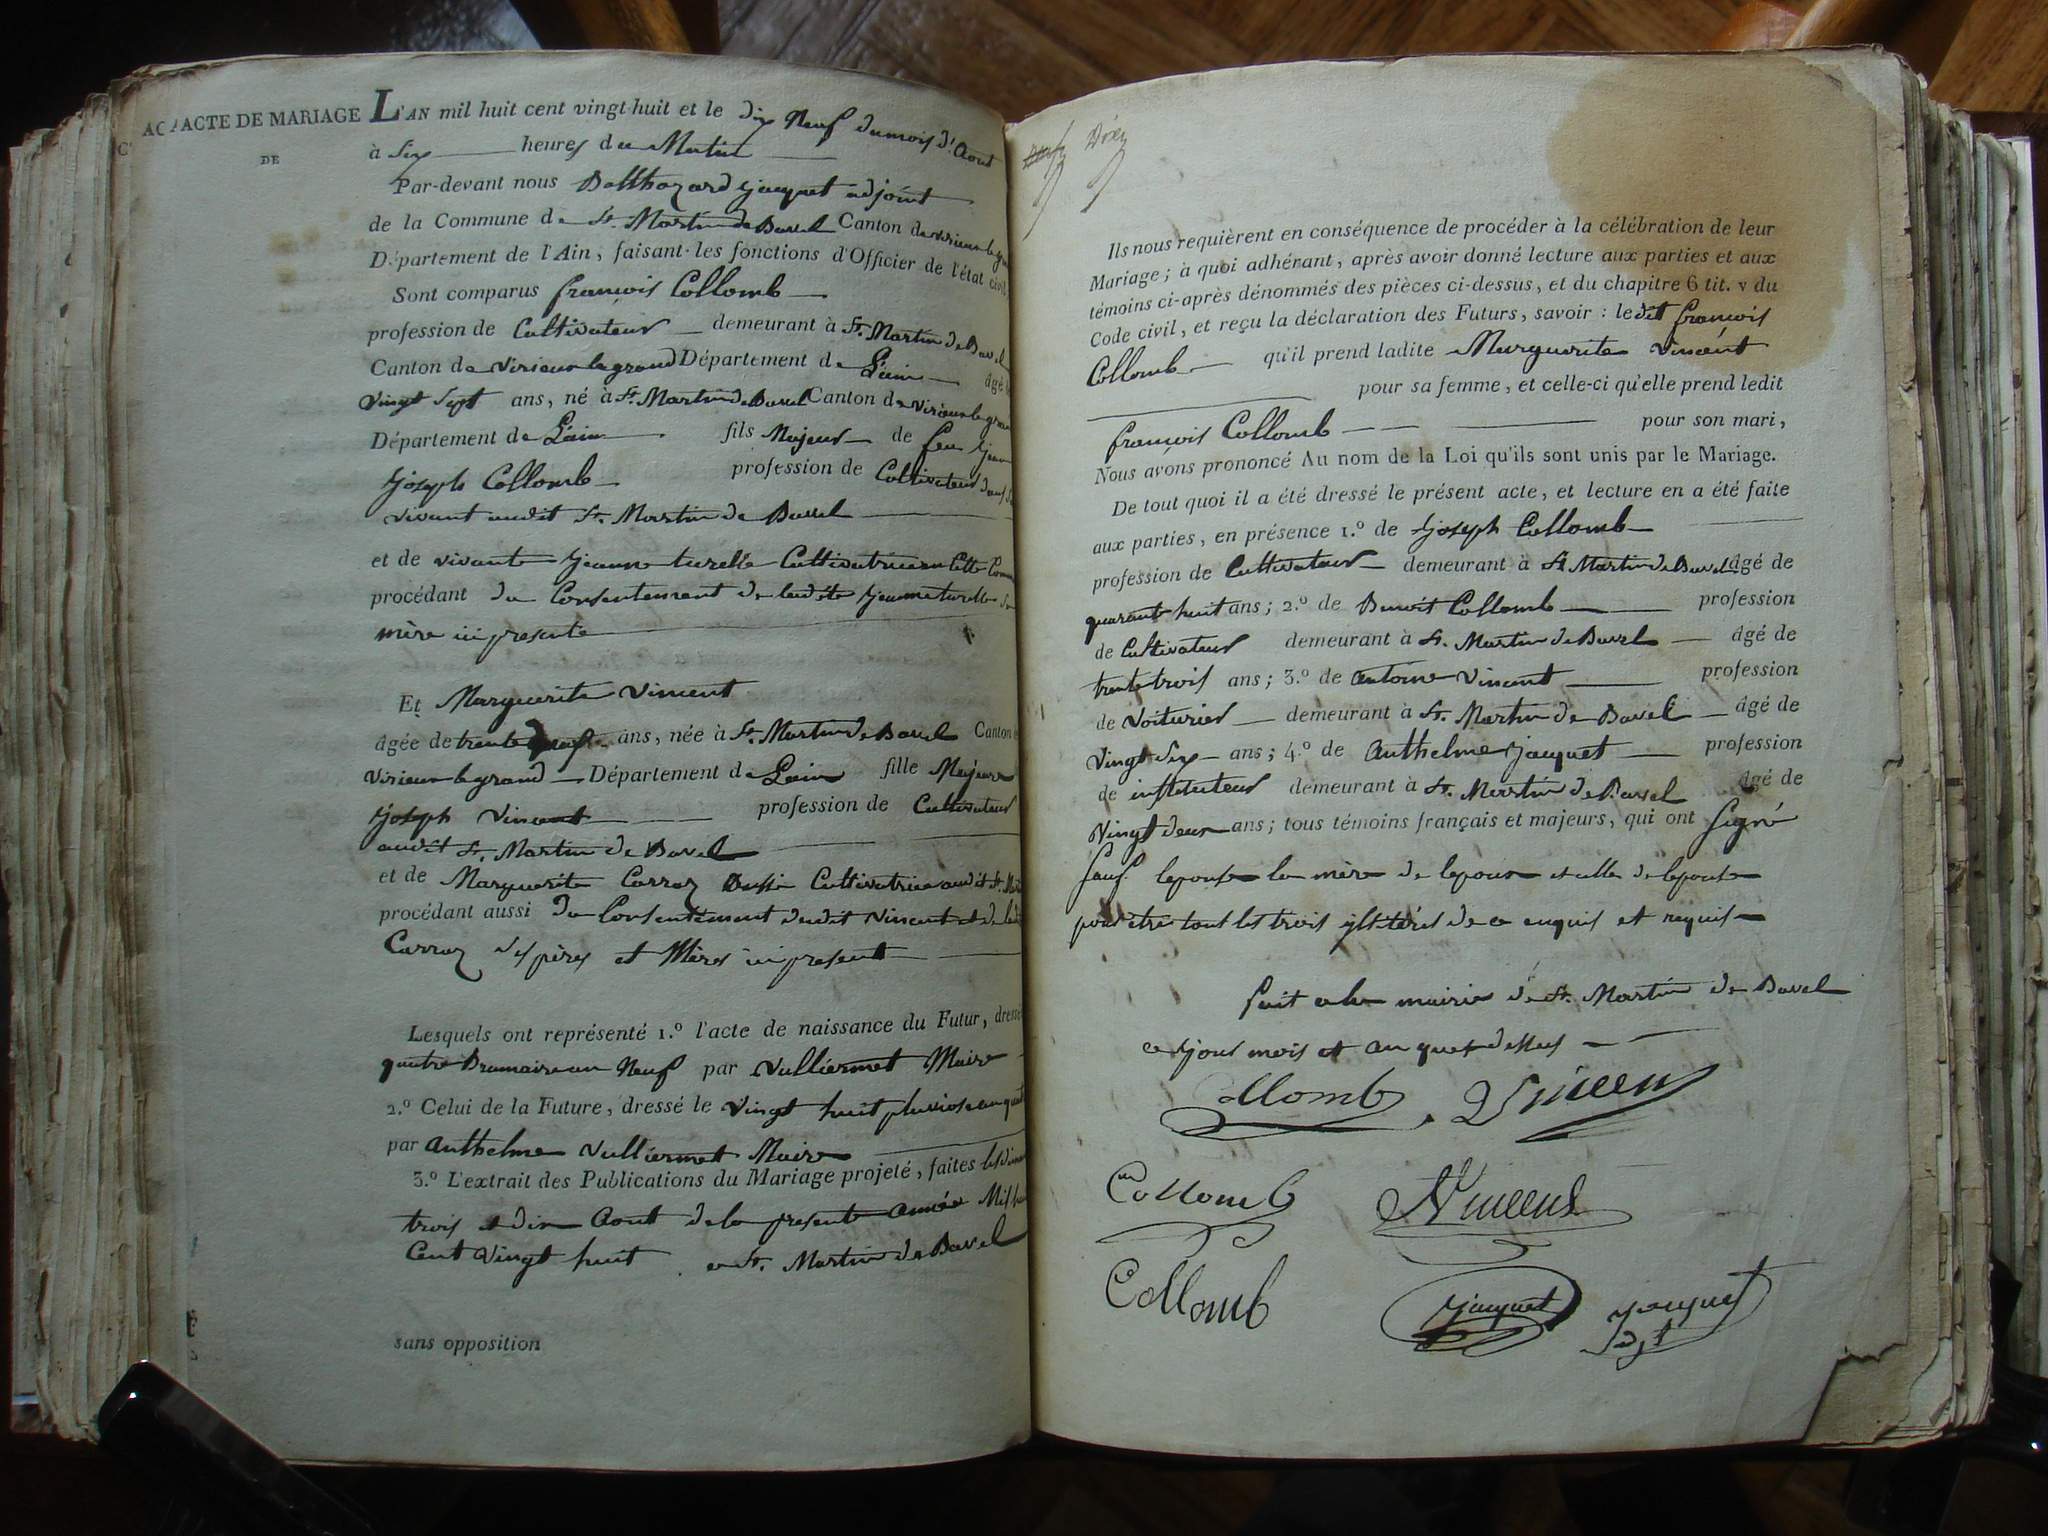 ACTE DE MARIAGE
DE
L'AN mil huit cent vingt-huit et le dix Neuf du mois d'Aout
à Six heures du Matin
Par-devant nous Balthazard Jacquet adjoint
de la Commune de St. Martin de Bavel Canton de virieux le gr
Département de l'Ain, faisant les fonctions d'Officier de l'état civil
Sont comparus françois Collomb
profession de Cultivateur demeurant à St. Martin de Bavel
Canton de virieux le grand Département de L'ain âgé
Vingt Sept ans, né à St. Martin de Bavel Canton de virieux le gra
Département de L'ain fils Majeur de feu Jean
Joseph Collomb profession de Cultivateur
vivant audit St. Martin de Bavel
et de vivante Jeanne turelle Cultivatrice en Cette Comm
procédant du Consentement de ladite Jeanne turelle Sa
mère ici presente
Et Marguerite Vincent
âgée de trente ans, née à St. Martin de Bavel Canton
Virieux le grand Département de L'ain fille Majeure
Joseph Vincent profession de Cultivateur
audit St. Martin de Bavel
et de Marguerite Carraz aussi Cultivatrice audit St. Mart
procédant aussi du Consentement dudit Vincent et de lad
Carraz Ses pères et Mères ici present
Lesquels ont représenté 1.º l'acte de naissance du Futur, dressé
quatre Brumaire an Neuf par Vulliermet Maire
2.º Celui de la Future, dressé le Vingt huit pluviose an
par Anthelme Vulliermet Maire
3.º L'extrait des Publications du Mariage projeté, faites les dim
trois et dix Aout de la presente année Mil h
Cent Vingt huit a St. Martin de Bavel
sans opposition
Ils nous requièrent en conséquence de procéder à la célébration de leur
Mariage; à quoi adhérant, après avoir donné lecture aux parties et aux
témoins ci-après dénommés des pièces ci-dessus, et du chapitre 6 tit. v du
Code civil, et reçu la déclaration des Futurs, savoir : ledit françois
Collomb qu'il prend ladite Marguerite Vincent
pour sa femme, et celle-ci qu'elle prend ledit
françois Collomb pour son mari,
Nous avons prononcé Au nom de la Loi qu'ils sont unis par le Mariage.
De tout quoi il a été dressé le présent acte, et lecture en a été faite
aux parties, en présence 1.º de Joseph Collomb
profession de Cultivateur demeurant à St. Martin de Bavel âgé de
quarante huit ans; 2.º de Benoit Collomb profession
de Cultivateur demeurant à St. Martin de Bavel âgé de
trente trois ans; 3.º de antoine Vincent profession
de Voiturier demeurant à St. Martin de Bavel âgé de
Vingt Six ans; 4.º de Anthelme Jacquet profession
de instituteur demeurant à St. Martin de Bavel âgé de
Vingt deux ans; tous témoins français et majeurs, qui ont Signé
Sauf lepouse la mère de lepoux et celle de lepouse
pour être tout les trois illitérés de ce enquis et requis
fait a la mairie de St. Martin de Bavel
ce jour mois et an que dessus
Collomb Vincent
Collomb AVincent
Collomb Jacquet Jacquet
adjt